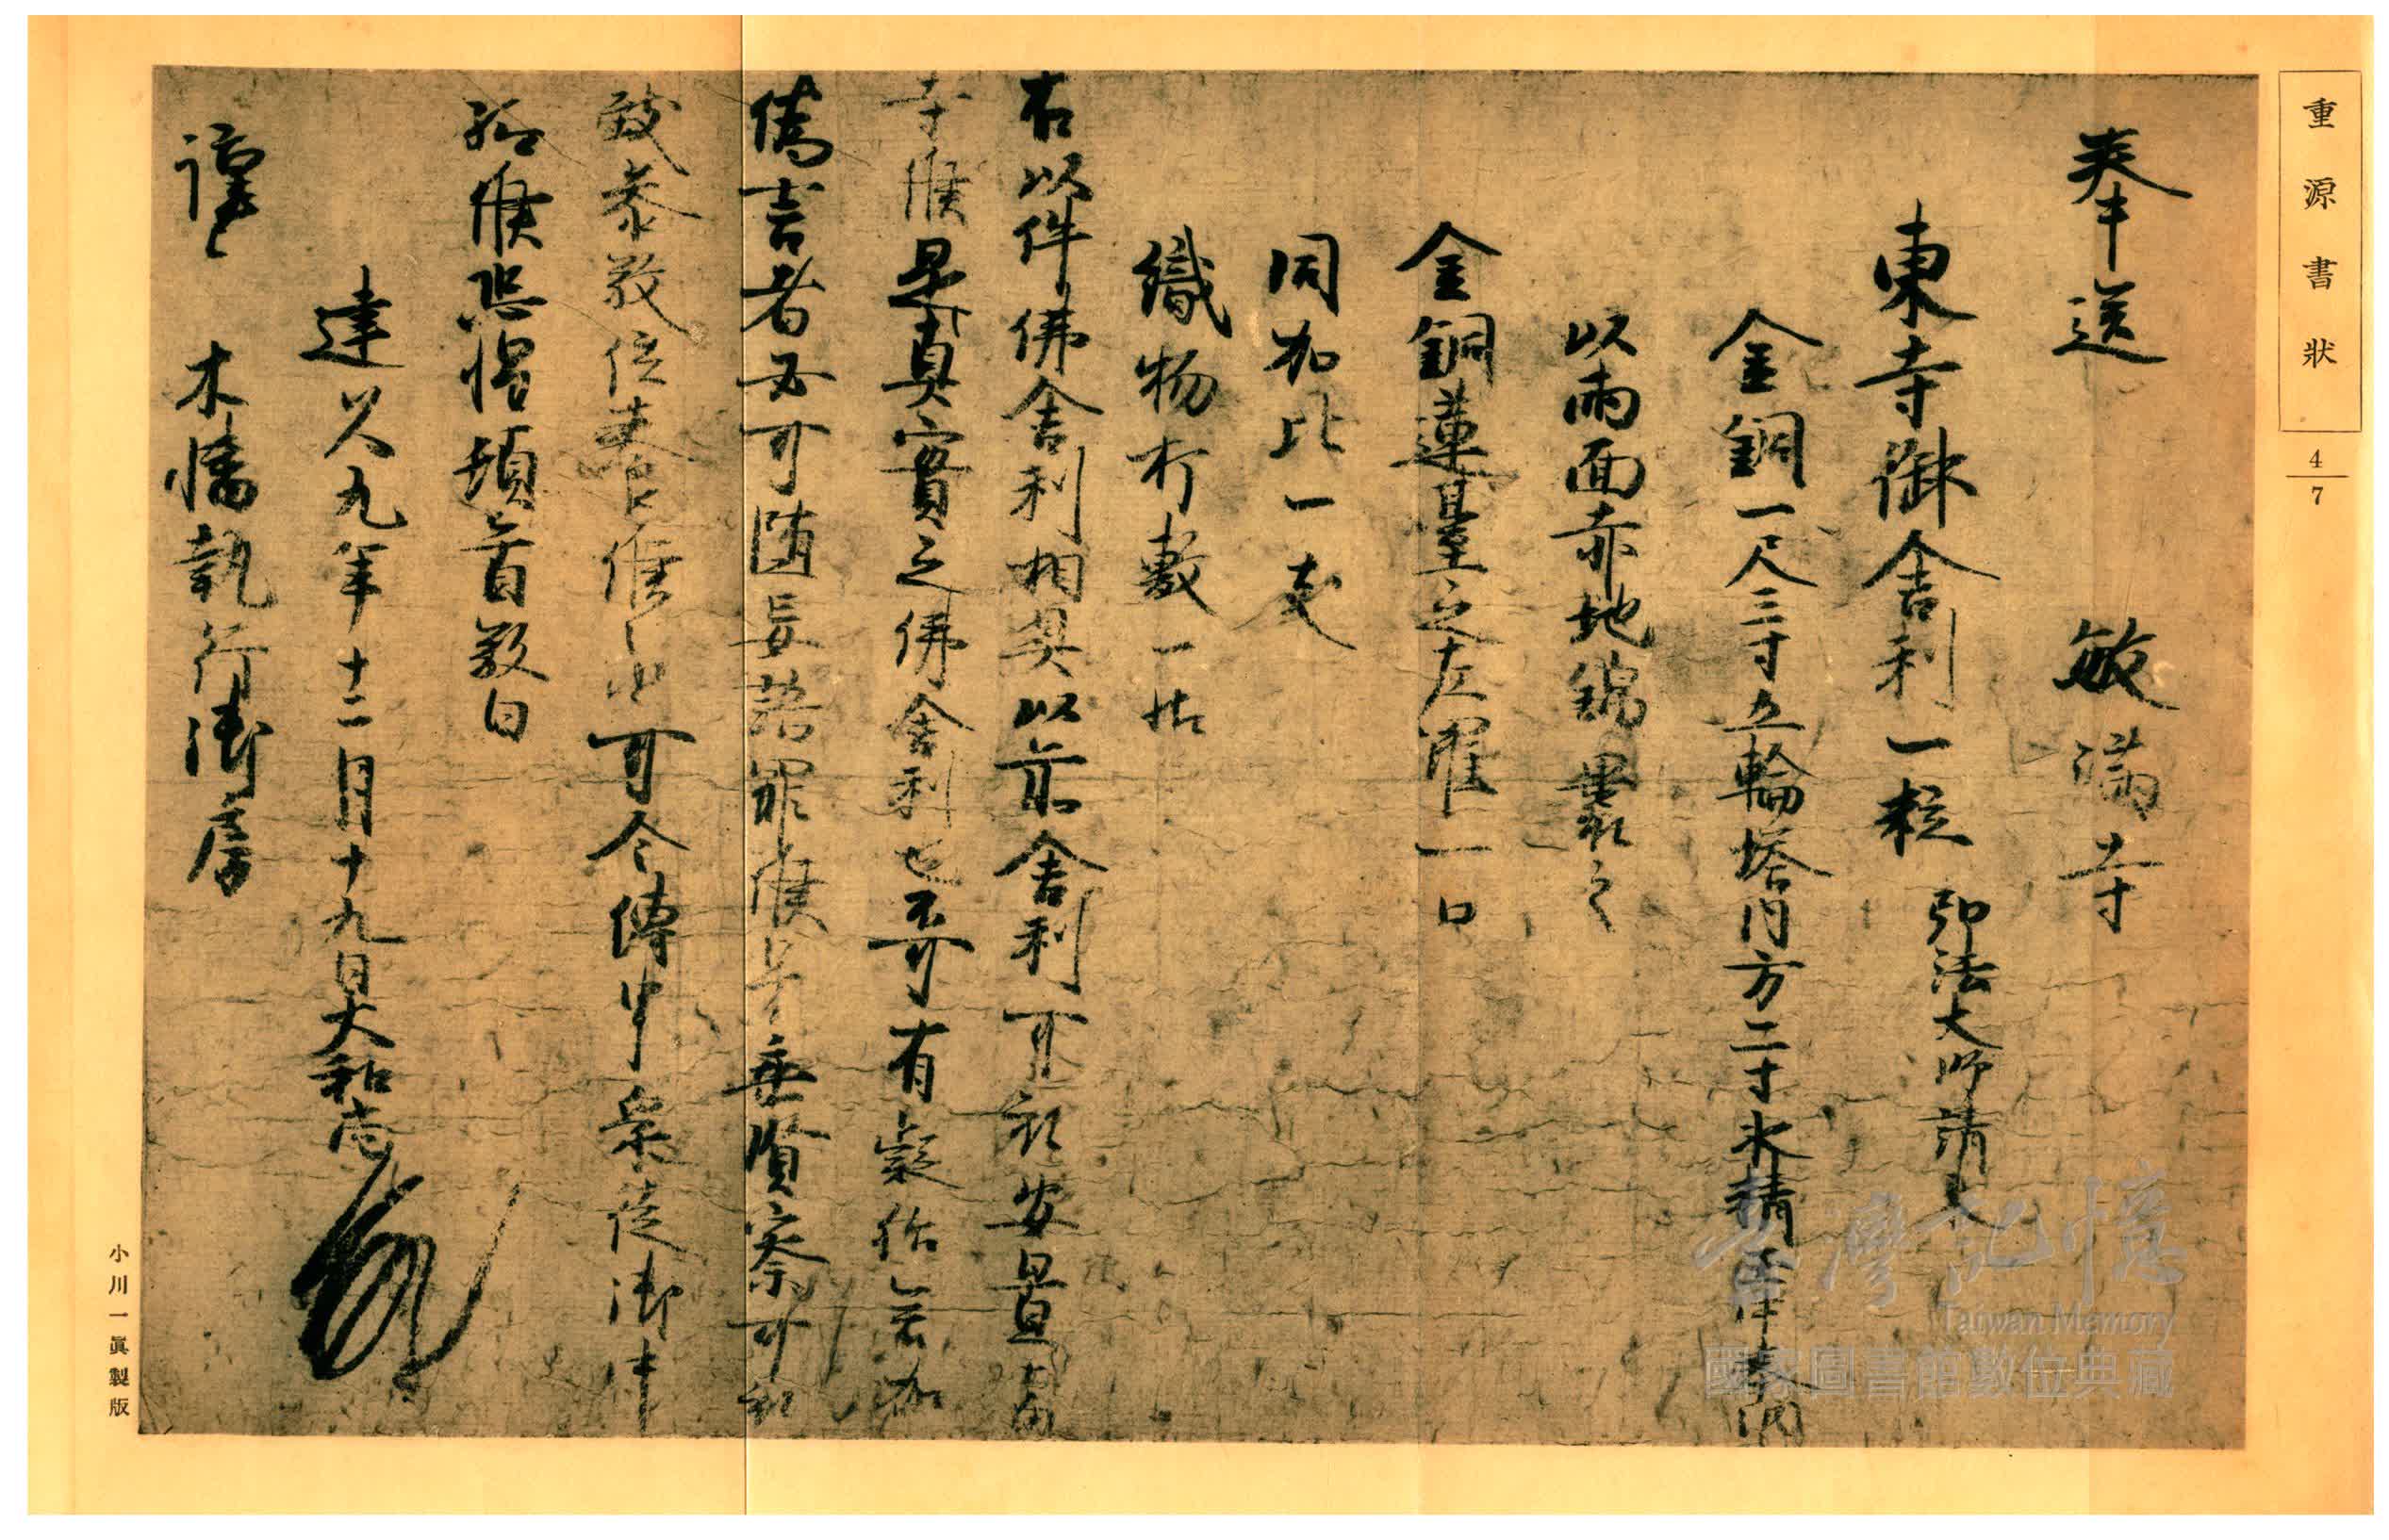 重源書狀
4
7
奉送 敏滿寺
東寺御舍利一粒 弘法大師請来
金銅一尺三寸五輪塔內方二寸水精玉中奉納
以兩面赤地錦裹之
金銅蓮臺之 一口
同加比一支
織物打敷一帖
右以件佛舍利相具以前舍利可 安置當
寺候是真實之佛舍利也不可有疑殆若加
偽言者必可隨妄語罪候早垂賢察可
致恭敬 候 可令傳申衆徒御中
給候恐惶頓首敬白
建久九年十二月十九日大和尚
謹上 木幡執行御房
小川一眞製版
臺灣記憶
Taiwan Memory
國家圖書館數位典藏